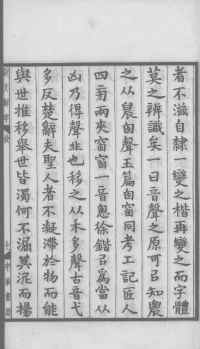 者不滋自隸一變之楷再變之而字體
莫之辨識矣一曰音聲之原可㠯知農
之从晨囪聲玉篇囪窗同考工記匠人
四㫄兩夾窗窗一音悤徐鍇㠯爲當从
凶乃得聲非也移之从禾多聲古音弋
多反楚辭夫聖人者不凝滯於物而能
與世推移舉世皆濁何不淈其泥而揚